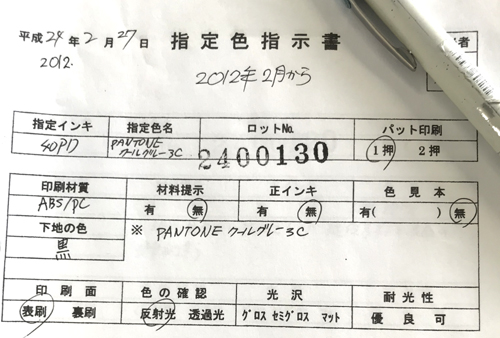 平成24年2月27日 指定色指示書 者
2012.
2012年2月から
指定インキ 指定色名 ロットNo. パット印刷
40PD PANTONE クールグレー3C 2400130 1押 2押
印刷材質 材料提示 正インキ 色見本
ABS/PC 有 無 有 無 有( ) 無
下地の色 ※ PANTONE クールグレー3C
黒
印刷面 色の確認 光沢 耐光性
表刷 裏刷 反射光 透過光 グロス セミグロス マット 優 良 可